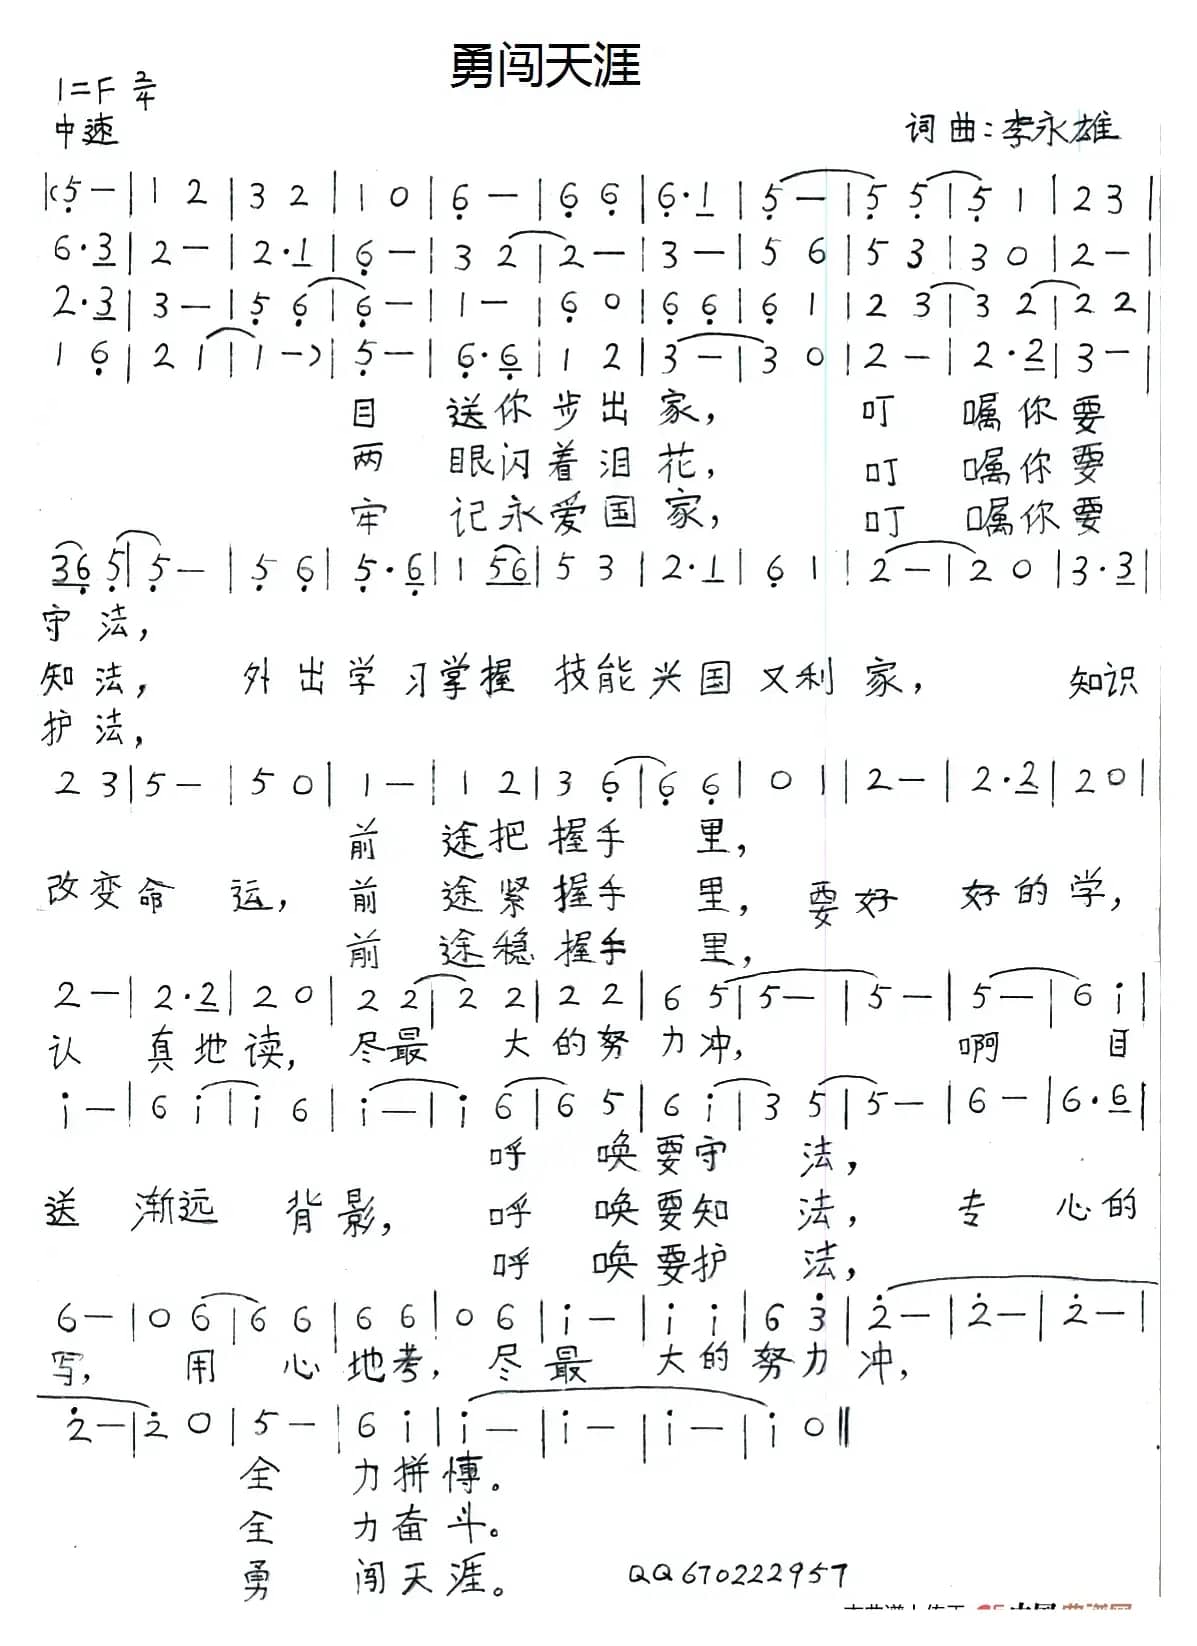 勇闯天涯
1=F 2/4
中速
词曲:李永雄
|(5̣ — | 1 2 | 3 2 | 1 0 | 6̣ — | 6̣ 6̣ | 6̣·1 | 5̣ — | 5̣ 5̣ | 5̣ 1 | 2 3 |
6·3 | 2 — | 2·1 | 6̣ — | 3 2 | 2 — | 3 — | 5 6 | 5 3 | 3 0 | 2 — |
2·3 | 3 — | 5̣ 6̣ | 6̣ — | 1 — | 6̣ 0 | 6̣ 6̣ | 6̣ 1 | 2 3 | 3 2 | 2 2 |
1 6̣ | 2 1 | 1 —) | 5̣ — | 6̣·6̣ | 1 2 | 3 — | 3 0 | 2 — | 2·2 | 3 — |
目 送你步出家, 叮 嘱你要
两 眼闪着泪花, 叮 嘱你要
牢 记永爱国家, 叮 嘱你要
36̣ 5̣ | 5̣ — | 5̣ 6̣ | 5̣·6̣ | 1 56 | 5 3 | 2·1 | 6̣ 1 | 2 — | 2 0 | 3·3 |
守法,
知法, 外出学习掌握 技能兴国又利家, 知识
护法,
2 3 | 5 — | 5 0 | 1 — | 1 2 | 3 6̣ | 6̣ 6̣ | 0 1 | 2 — | 2·2 | 2 0 |
前 途把握手 里,
改变命 运, 前 途紧握手 里, 要好 好的学,
前 途稳握手 里,
2 — | 2·2 | 2 0 | 2 2 | 2 2 | 2 2 | 6 5 | 5 — | 5 — | 5 — | 6 i |
认 真地读, 尽最 大的努力冲, 啊 目
i — | 6 i | i 6 | i — | i 6 | 6 5 | 6 i | 3 5 | 5 — | 6 — | 6·6 |
呼 唤要守 法,
送 渐远 背影, 呼 唤要知 法, 专 心的
呼 唤要护 法,
6 — | 0 6 | 6 6 | 6 6 | 0 6 | i — | i i | 6 3̇ | 2̇ — | 2̇ — | 2̇ — |
写, 用 心地考, 尽最 大的努力冲,
2̇ — | 2̇ 0 | 5 — | 6 i | i — | i — | i — | i 0 ‖
全 力拼愽。
全 力奋斗。
勇 闯天涯。
QQ670222957